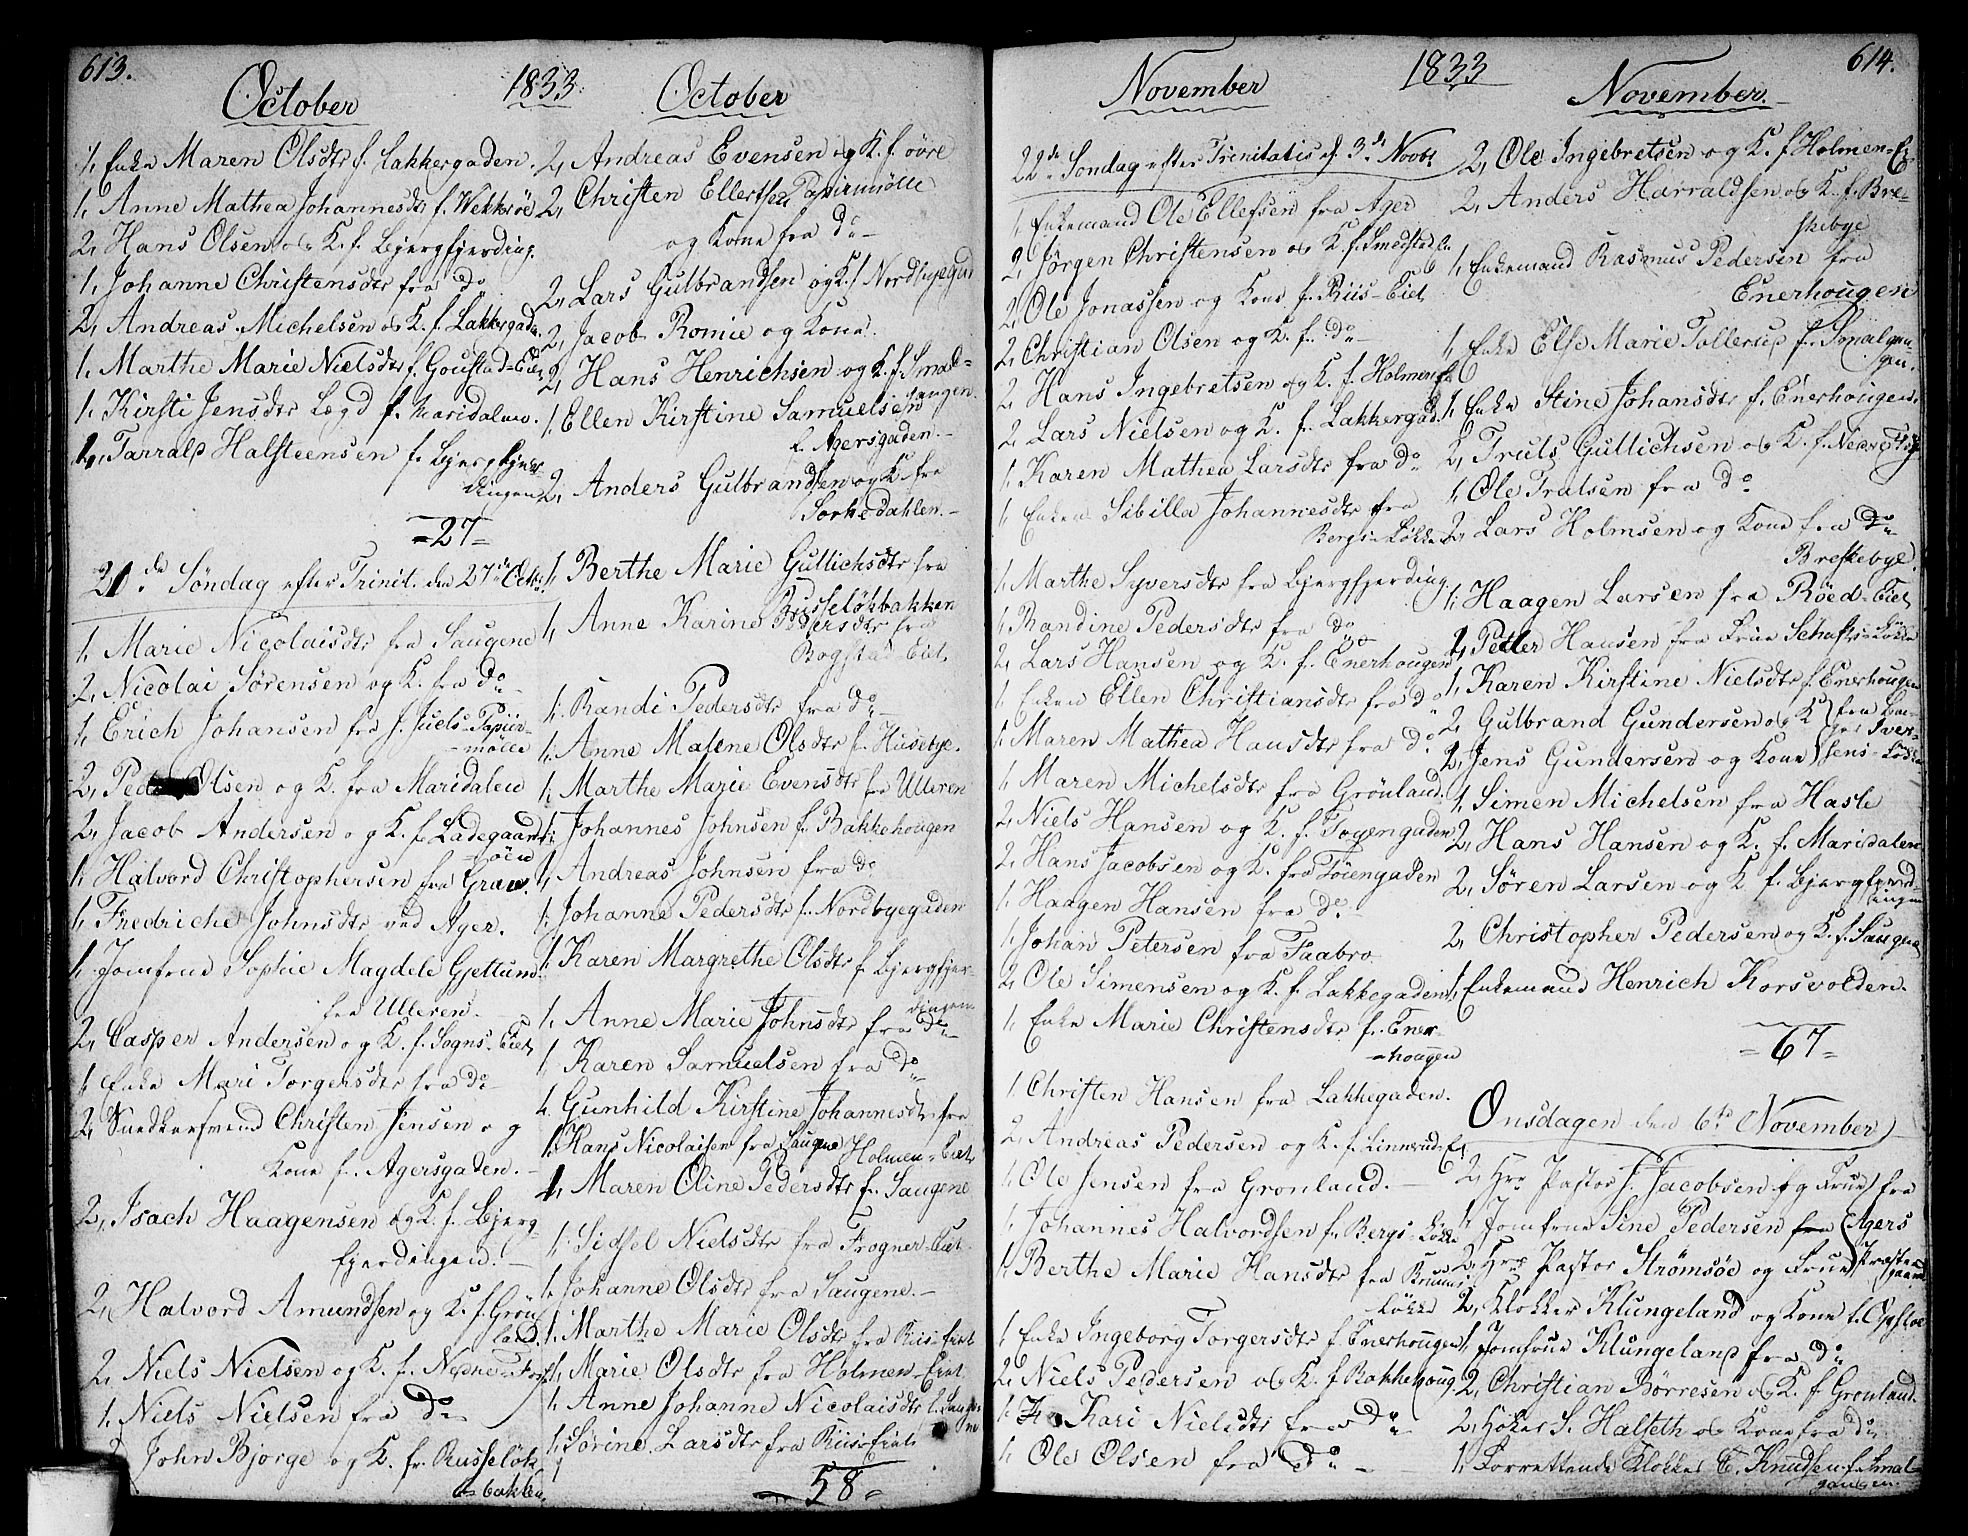 613.
1833.
October
1, Enke Maren Olsdtr f. Lakkergaden.
1, Anne Mathea Johannesdtr f. Wekkerøe
2, Hans Olsen og K. f. Bjergfjerding.
1, Johanne Christensdtr fra do
2, Andreas Michelsen og K. f. Lakkergade.
1, Marthe Marie Nielsdtr f. Goustad=Eiet
1, Kirsti Jensdtr Lægd f. Maridalen.
1, Tarrald Halsteensen f. Bjergfjer-
dingen
=27=
21de Søndag efter Trinit. den 27de Octb:
1, Marie Nicolaisdtr fra Saugene
2, Nicolai Sørensen og K. fra do
1, Erich Johansen fra J. Juels Papiir-
=mølle
2, Peder Olsen og K. fra Maridalen
2, Jacob Andersen og K. f. Ladegaards-
=øen
1, Halvord Christophersen fra Grav.
1, Fredriche Johnsdtr ved Ager.
1, Jomfrue Sophie Magdele Gjettum
fra Ulleren.
2, Casper Andersen og K. f. Sogns-Eiet
1, Enke Mari Torgersdtr fra do
2, Snedkersvend Christen Jensen og
Kone f. Agersgaden.
2, Isach Haagensen og K. f. Bjerg-
fjerdingen.
2, Halvord Amundsen og K. f. Grøn-
land.
2, Niels Nielsen og K. f. Nedre-Foss
1, Niels Nielsen fra do
2, John Bjorge og K. fr. Russeløk-
=bakken.
October
2, Andreas Evensen og K. f. øvre
2, Christen Ellertsen Papirmølle
og Kone fra do
2, Lars Gulbrandsen og K. f. Nordbyegad
2, Jacob Romie og Kone.
2, Hans Henrichsen og K. f. Smale=
gangen.
1, Ellen Kirstine Samuelsen
f. Agersgaden.
2, Anders Gulbrandsen og K. fra
Sørkedahlen.
1, Berthe Marie Gullichsdtr fra
Russeløkbakken
1, Anne Karine Pedersdtr fra
Bogstad Eiet
1, Randi Pedersdtr fra do
1, Anne Malene Olsdtr f. Husebye.
1, Marthe Marie Evensdtr fra Ulleren
1, Johannes Johnsen f. Bakkehougen
1, Andreas Johnsen fra do
1, Johanne Pedersdtr f. Nordbyegaden
1, Karen Margrethe Olsdtr f. Bjergfjer-
dingen
1, Anne Marie Johnsdtr fra do
1, Karen Samuelsen fra do
1, Gunhild Kirstine Johannesdtr fra
Holmen=Eiet
1, Hans Nicolaisen fra Saugene
1, Maren Oline Pedersdtr f. Saugene
1, Sidsel Nielsdtr fra Frogner-Eiet
1, Johanne Olsdtr fra Saugene.
1, Marthe Marie Olsdtr fra Riis-Eiet
1, Marie Olsdtr fra Holmen-Eiet
1, Anne Johanne Nicolaisdtr f. Sauge-
ne
1, Sørine Larsdtr fra Riis-Eiet
=58=
614.
1833
November
22de Søndag efter Trinitatis d. 3de Novbr
1, Enkemand Ole Ellefsen fra Ager
2, Jørgen Christensen og K. f. Smedstad E.
2, Ole Jonassen og Kone f. Riis-Eiet
2, Christian Olsen og K. f. do
2, Hans Ingebretsen og K. f. Holmen E.
2, Lars Nielsen og K. f. Lakkergad.
1, Karen Mathea Larsdtr fra do
1, Enken Sibilla Johannesdtr fra
Bergs-Løkke
1, Marthe Syversdtr fra Bjergfjerding
1, Randine Pedersdtr fra do
2, Lars Hansen og K. f. Enerhougen
1, Enken Ellen Christiansdtr fra do
1, Maren Mathea Hansdtr fra do
1, Maren Michelsdtr fra Grønland.
2, Niels Hansen og K. f. Toyengaden
2, Hans Jacobsen og K. fra Tøiengaden
1, Haagen Hansen fra do
1, Johan Petersen fra Faabro
2, Ole Simensen og K. f. Lakkegaden
1, Enke Marie Christensdtr f. Ener-
=hougen
1, Christen Hansen fra Lakkegaden.
2, Andreas Pedersen og K. f. Linnerud-Et
1, Ole Jensen fra Gronland.
1, Johannes Halvordsen f. Bergs-Løkke
1, Berthe Marie Hansdtr fra Bruuns
Løkke
1, Enke Ingeborg Torgersdtr f. Enerhougen
2, Niels Pedersen og K. f. Bakkehoug.
1, Kari Nielsdtr fra do
1, Ole Olsen fra do
November.
2, Ole Ingebretsen og K. f. Holmen-E
2, Anders Harraldsen og K. f. Bre-
skebye
1, Enkemand Rasmus Pedersen fra
Enerhougen
1, Enke Else Marie Tollerup f. Smalgan-
gen.
1, Enke Stine Johansdtr f. Enerhougen
2, Truls Gullichsen og K. f. Nedre Foss
1, Ole Trulsen fra do
2, Lars Holmsen og Kone fra do
Breskebye.
1, Haagen Larsen fra Røed-Eiet
1, Petter Hansen fra Frue Schafts-Løkke
1, Karen Kirstine Nielsdtr f. Enerhougen
2, Gulbrand Gundersen og K fra
Iver-
2, Jens Gundersen og Kone sens-Løkke
1, Simen Michelsen fra Hasle
2, Hans Hansen og K. f. Maridalen
2, Søren Larsen og K f. Bjergfjerd-
ingen
2, Christopher Pedersen og K. f. Saugene
1, Enkemand Henrich Korsvolden.
=67=
Onsdagen den 6te November
2, Hrr Pastor J. Jacobsen og Frue fra
1, Jomfrue Sine Pedersen fra Agers
2, Hrr Pastor Strømsøe og Frue Præste-
gaard
2, Klokker Klungeland og Kone f. Opsloe
1, Jomfrue Klungeland fra do
2, Christian Børresen og K. f. Gronland.
2, Høker S. Halseth og Kone fra do
1, Forrettende Klokker E. Knudsen f. Smal-
gangen.